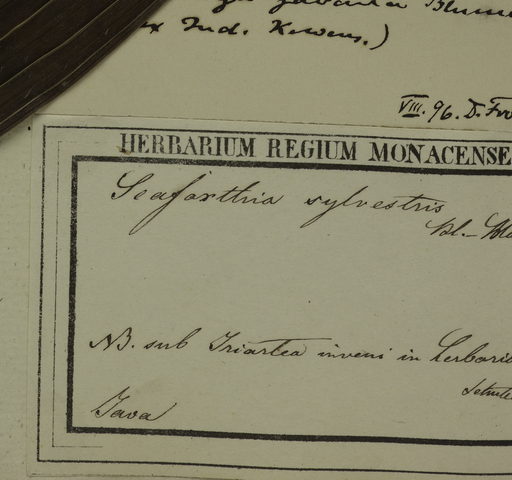 javanica Blume
ex Ind. Kewens.)
VIII. 96. D.
HERBARIUM REGIUM MONACENSE
Seaforthia sylvestris
Bl.
NB. sub Iriartea inveni in herbario
Java